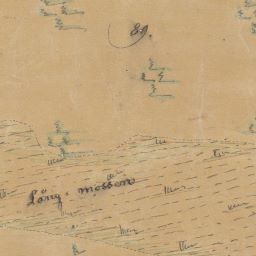 89.
Lång-mossen